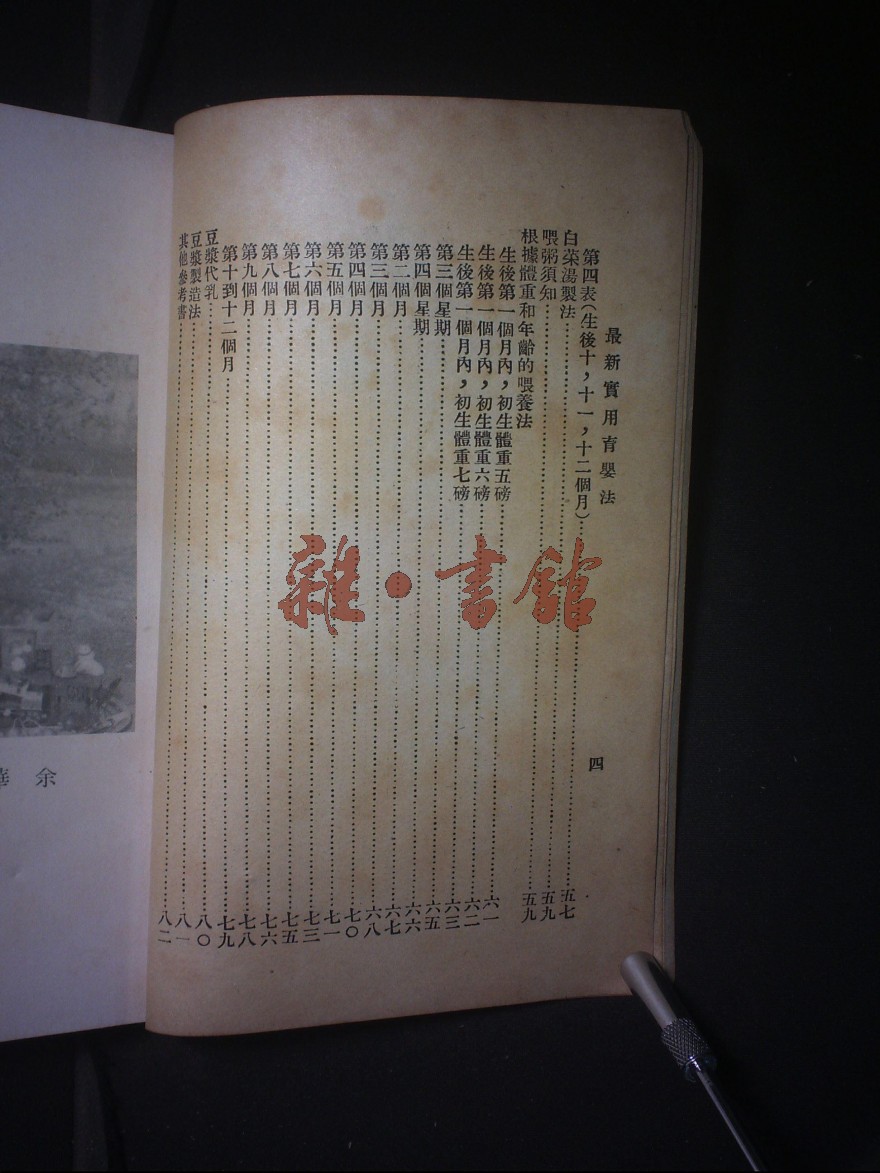 最新實用育嬰法
四
第四表(生後十,十一,十二個月)
白菜湯製法 五七
喂粥須知 五九
根據體重和年齡的喂養法 五九
生後第一個月內,初生體重五磅 六一
生後第一個月內,初生體重六磅 六二
生後第一個月內,初生體重七磅 六三
第三個星期 六五
第四個星期 六六
第二個月 六七
第三個月 六八
第四個月 七〇
第五個月 七一
第六個月 七三
第七個月 七五
第八個月 七六
第九個月 七八
第十到十二個月 七九
豆漿代乳 八〇
豆漿製造法 八一
其他參考書 八二
雜·書館
余